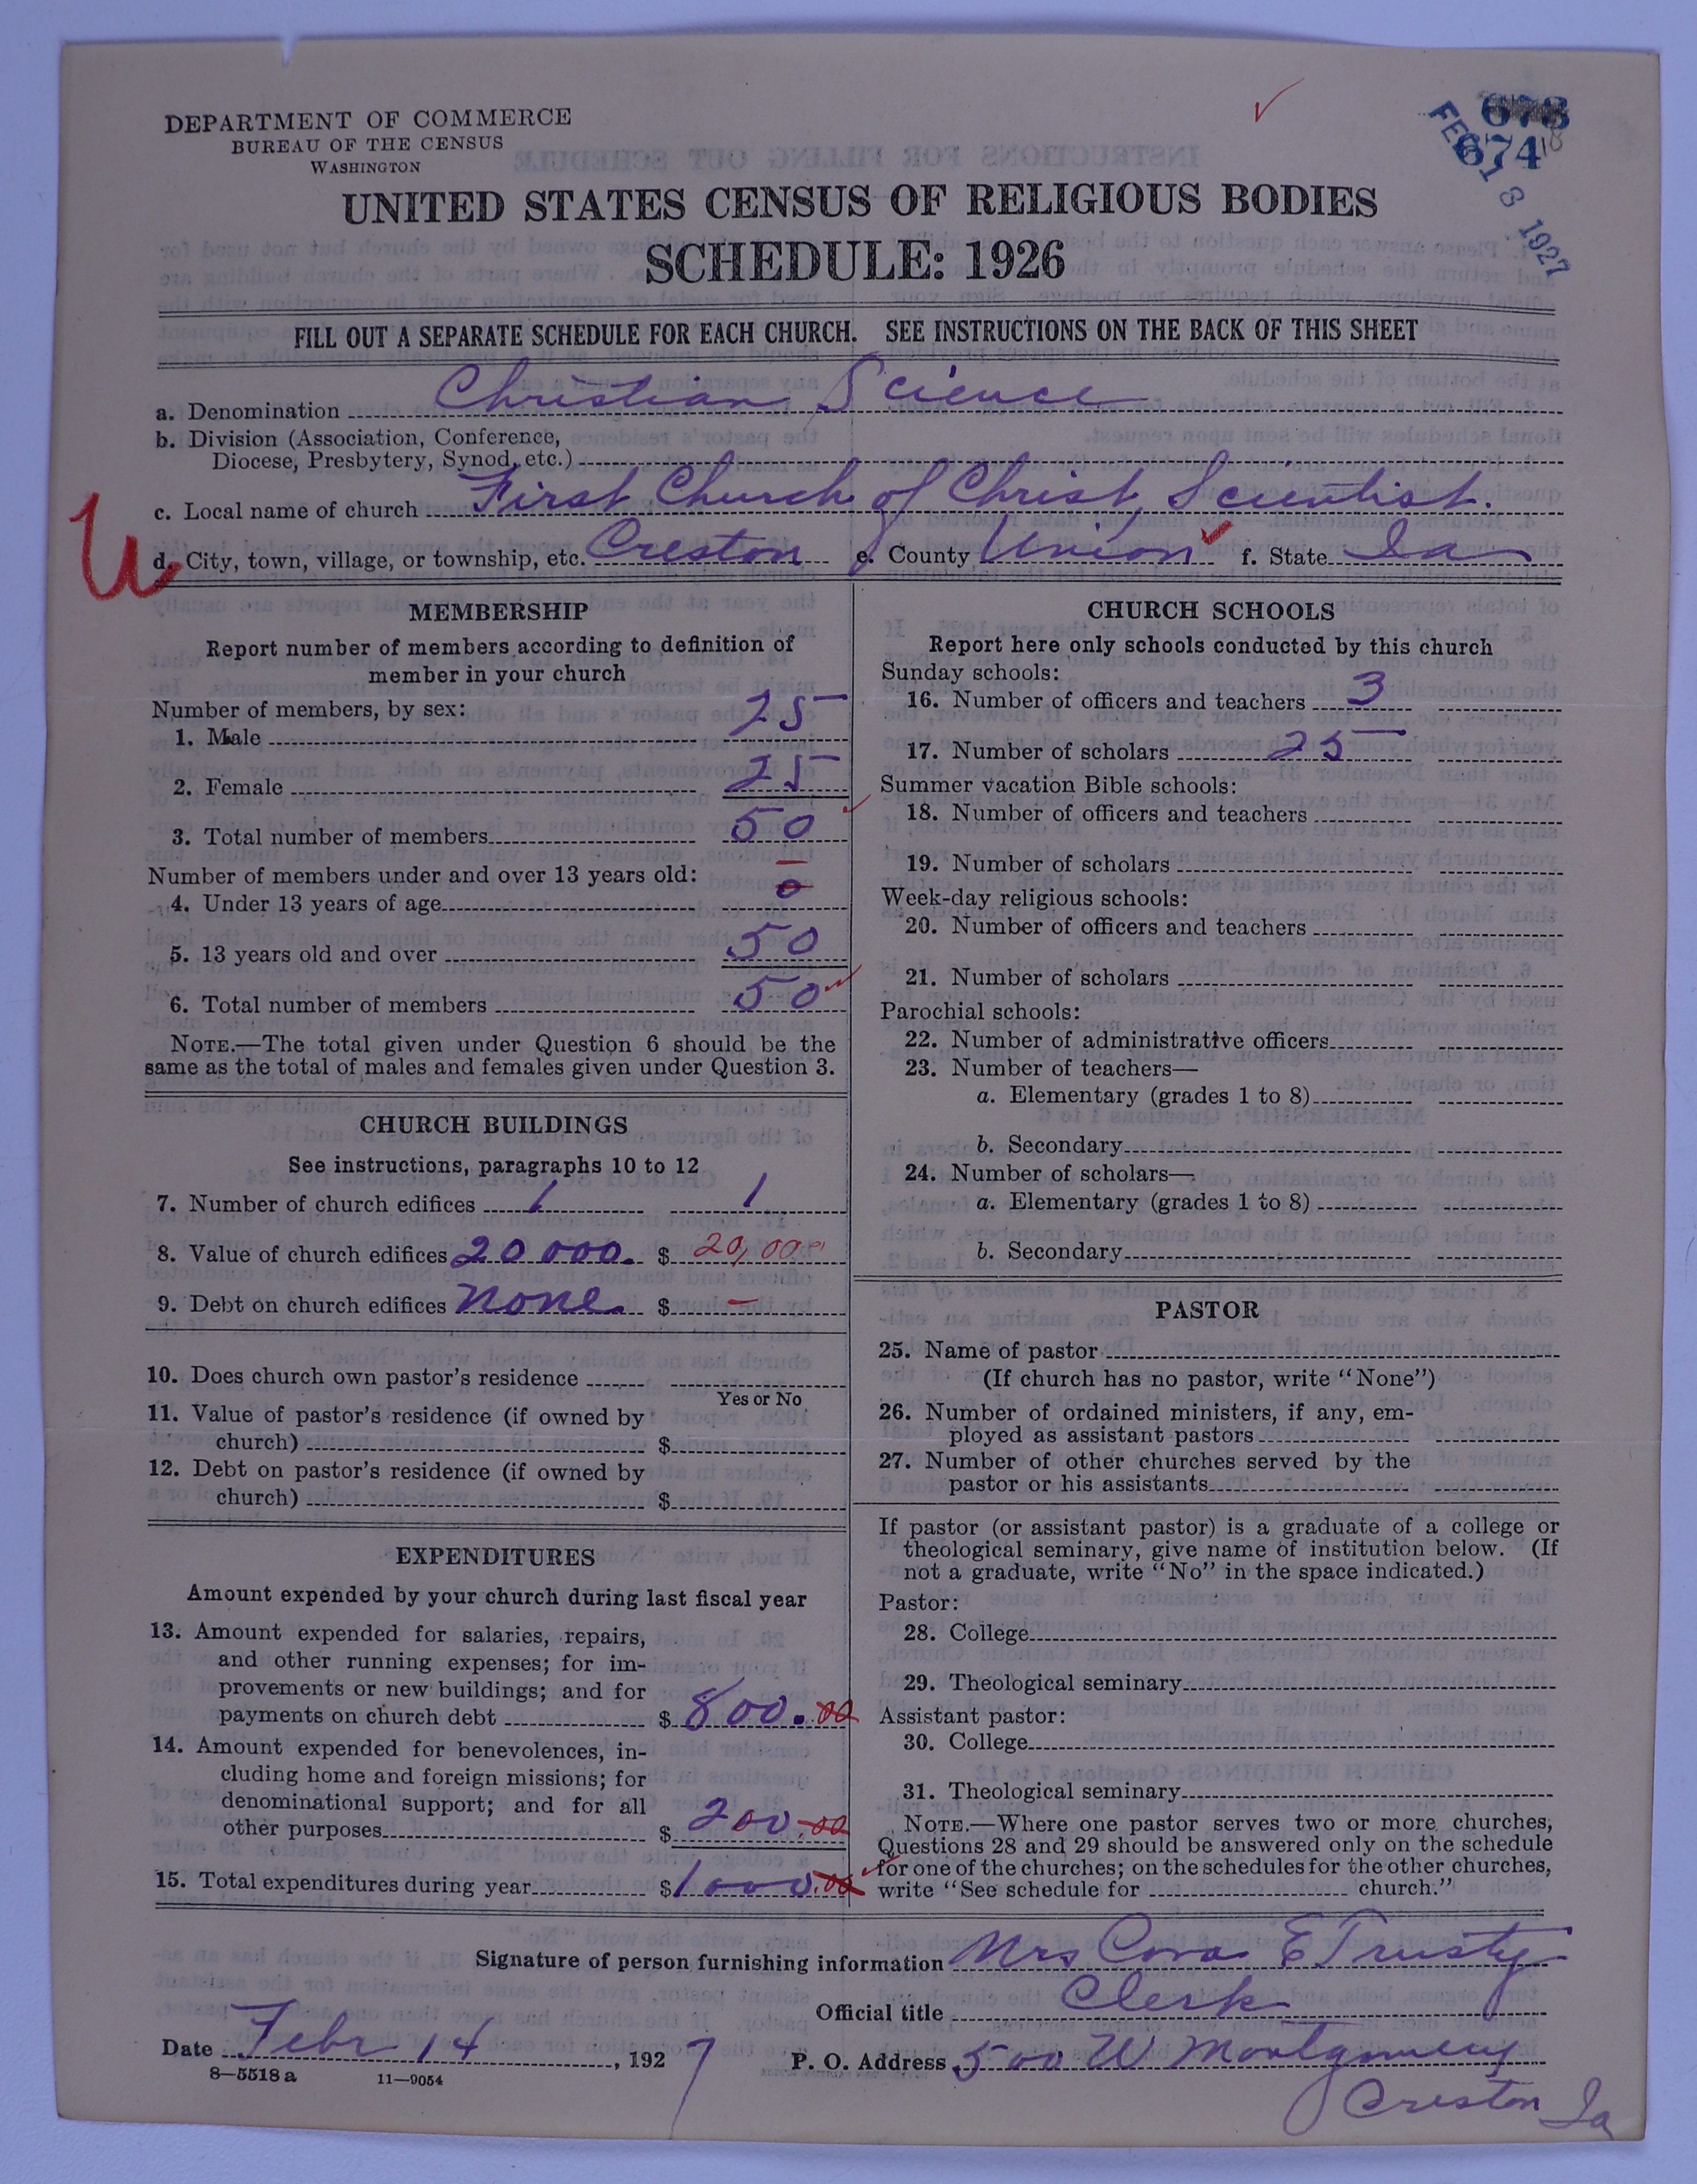 678
674 18
FEB 18 1927
DEPARTMENT OF COMMERCE
BUREAU OF THE CENSUS
WASHINGTON
UNITED STATES CENSUS OF RELIGIOUS BODIES
SCHEDULE: 1926
FILL OUT A SEPARATE SCHEDULE FOR EACH CHURCH. SEE INSTRUCTIONS ON THE BACK OF THIS SHEET
a. Denomination Christian Science
b. Division (Association, Conference,
Diocese, Presbytery, Synod, etc.)
c. Local name of church First Church of Christ, Scientist.
d. City, town, village, or township, etc. Creston e. County Union f. State Ia
MEMBERSHIP
Report number of members according to definition of
member in your church
Number of members, by sex:
1. Male 25
2. Female 25
3. Total number of members 50
Number of members under and over 13 years old:
4. Under 13 years of age 0
5. 13 years old and over 50
6. Total number of members 50
NOTE.—The total given under Question 6 should be the
same as the total of males and females given under Question 3.
CHURCH BUILDINGS
See instructions, paragraphs 10 to 12
7. Number of church edifices 1 1
8. Value of church edifices 20000. $ 20,000
9. Debt on church edifices None. $ —
10. Does church own pastor's residence
Yes or No
11. Value of pastor's residence (if owned by
church) $
12. Debt on pastor's residence (if owned by
church) $
EXPENDITURES
Amount expended by your church during last fiscal year
13. Amount expended for salaries, repairs,
and other running expenses; for im-
provements or new buildings; and for
payments on church debt $ 800.00
14. Amount expended for benevolences, in-
cluding home and foreign missions; for
denominational support; and for all
other purposes $ 200.00
15. Total expenditures during year $ 1000.00
CHURCH SCHOOLS
Report here only schools conducted by this church
Sunday schools:
16. Number of officers and teachers 3
17. Number of scholars 25
Summer vacation Bible schools:
18. Number of officers and teachers
19. Number of scholars
Week-day religious schools:
20. Number of officers and teachers
21. Number of scholars
Parochial schools:
22. Number of administrative officers
23. Number of teachers—
a. Elementary (grades 1 to 8)
b. Secondary
24. Number of scholars—
a. Elementary (grades 1 to 8)
b. Secondary
PASTOR
25. Name of pastor
(If church has no pastor, write "None")
26. Number of ordained ministers, if any, em-
ployed as assistant pastors
27. Number of other churches served by the
pastor or his assistants
If pastor (or assistant pastor) is a graduate of a college or
theological seminary, give name of institution below. (If
not a graduate, write "No" in the space indicated.)
Pastor:
28. College
29. Theological seminary
Assistant pastor:
30. College
31. Theological seminary
NOTE.—Where one pastor serves two or more churches,
Questions 28 and 29 should be answered only on the schedule
for one of the churches; on the schedules for the other churches,
write "See schedule for church."
Signature of person furnishing information Mrs Cora E Trusty
Official title Clerk
Date Febr 14, 1927 P. O. Address 500 W Montgomery
Creston Ia
8—5518 a 11—9054